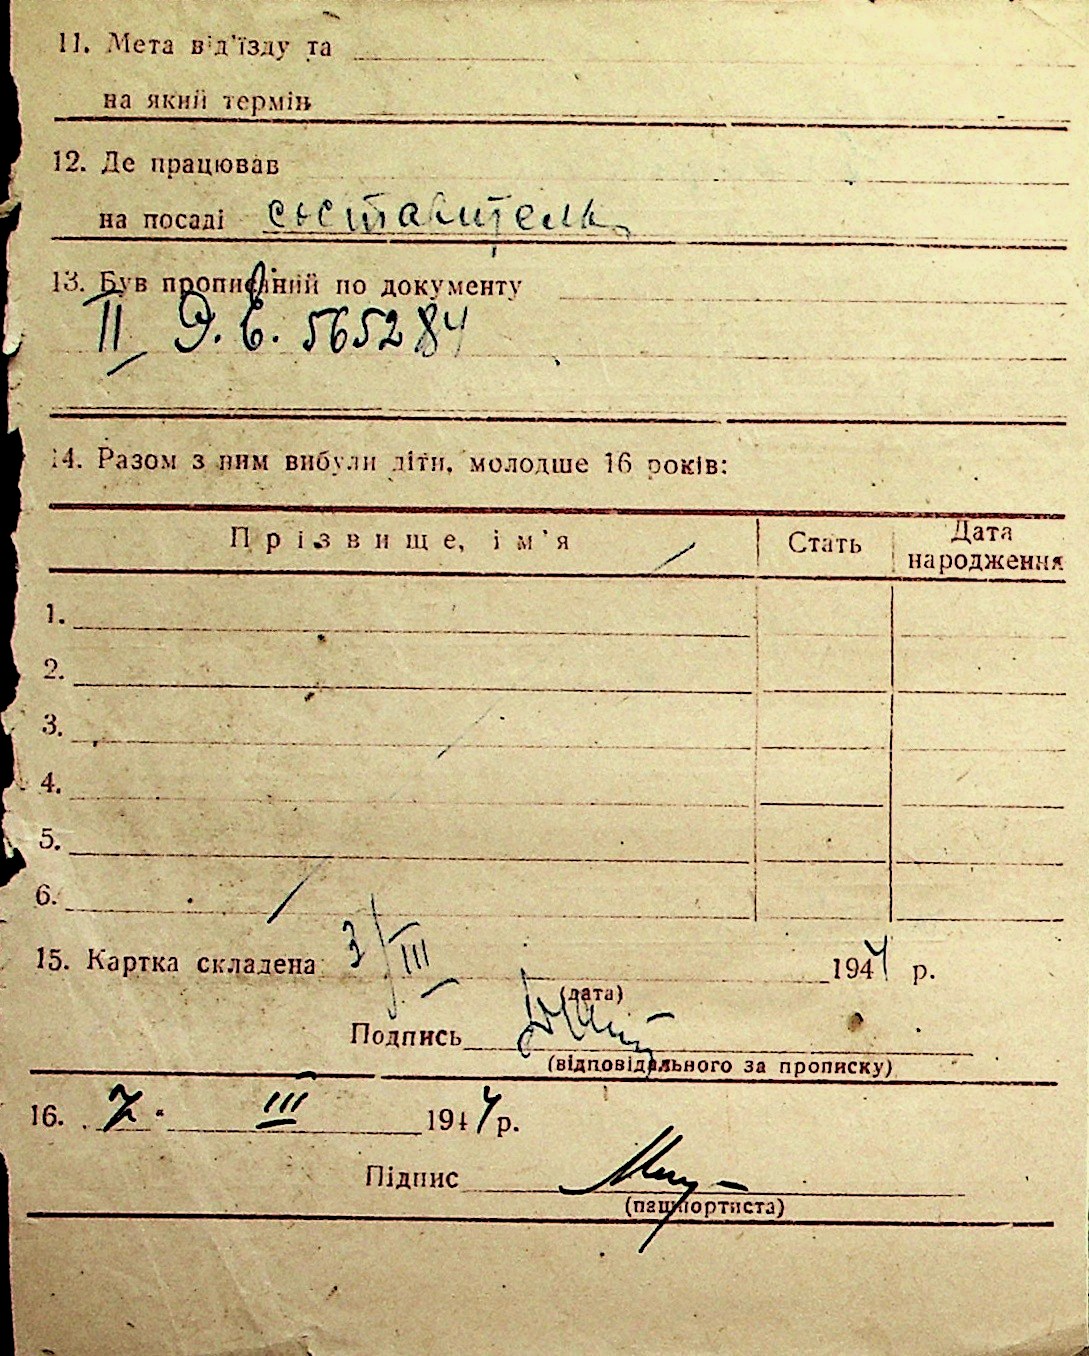 11. Мета від'їзду та
на який термін
12. Де працював
на посаді составитель
13. Був прописаний по документу
II Э. Е. 565284
14. Разом з ним вибули діти, молодше 16 років:
Прізвище, ім'я Стать Дата народження
1.
2.
3.
4.
5.
6.
15. Картка складена 3/III 1944 р.
(дата)
Подпись
(відповідального за прописку)
16. 7. III 1944 р.
Підпис
(пашпортиста)